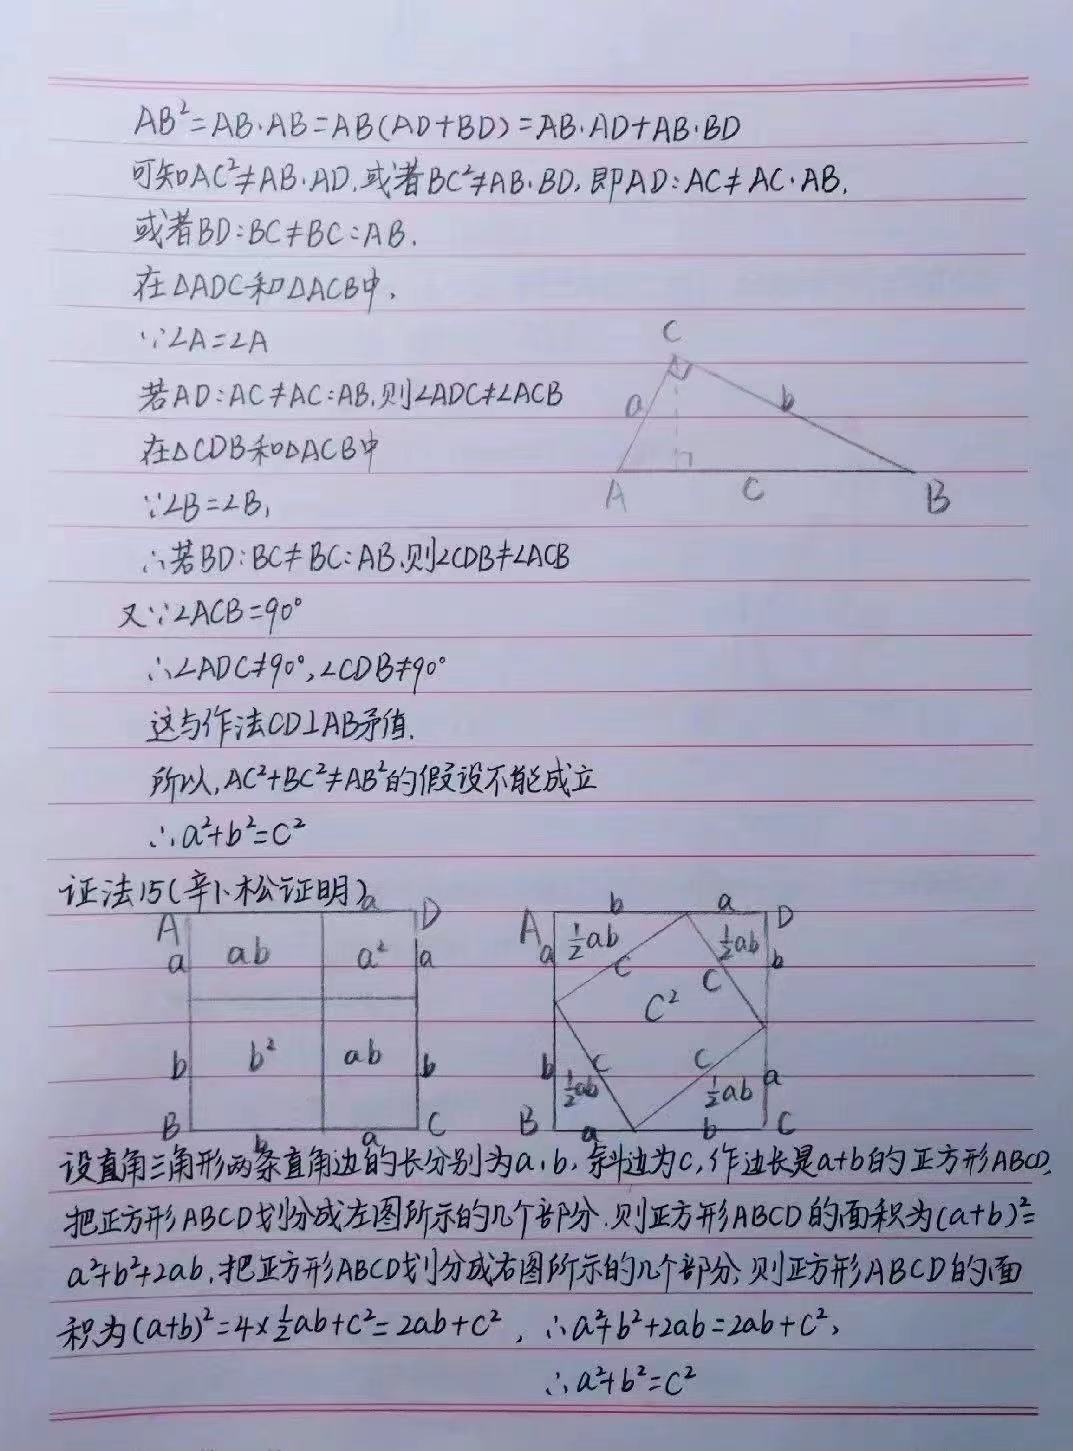 AB²=AB·AB=AB(AD+BD)=AB·AD+AB·BD
可知AC²≠AB·AD,或者BC²≠AB·BD,即AD:AC≠AC·AB,
或者BD:BC≠BC:AB.
在△ADC和△ACB中,
∵∠A=∠A
若AD:AC≠AC:AB,则∠ADC≠∠ACB
在△CDB和△ACB中
∵∠B=∠B,
∴若BD:BC≠BC:AB,则∠CDB≠∠ACB
又∵∠ACB=90°
∴∠ADC≠90°,∠CDB≠90°
这与作法CD⊥AB矛值.
所以,AC²+BC²≠AB²的假设不能成立
∴a²+b²=C²
C
a
b
A
C
B
证法15(辛卜松证明)
a
A
D
a
ab
a²
a
b
b²
ab
b
B
b
a
C
b
a
A
D
a
½ab
½ab
b
C
C
C²
b
C
C
a
½ab
½ab
B
a
b
C
设直角三角形两条直角边的长分别为a,b,斜边为c,作边长是a+b的正方形ABCD,
把正方形ABCD划分成左图所示的几个部分.则正方形ABCD的面积为(a+b)²=
a²+b²+2ab,把正方形ABCD划分成右图所示的几个部分,则正方形ABCD的面
积为(a+b)²=4×½ab+c²=2ab+c²,∴a²+b²+2ab=2ab+c²,
∴a²+b²=c²